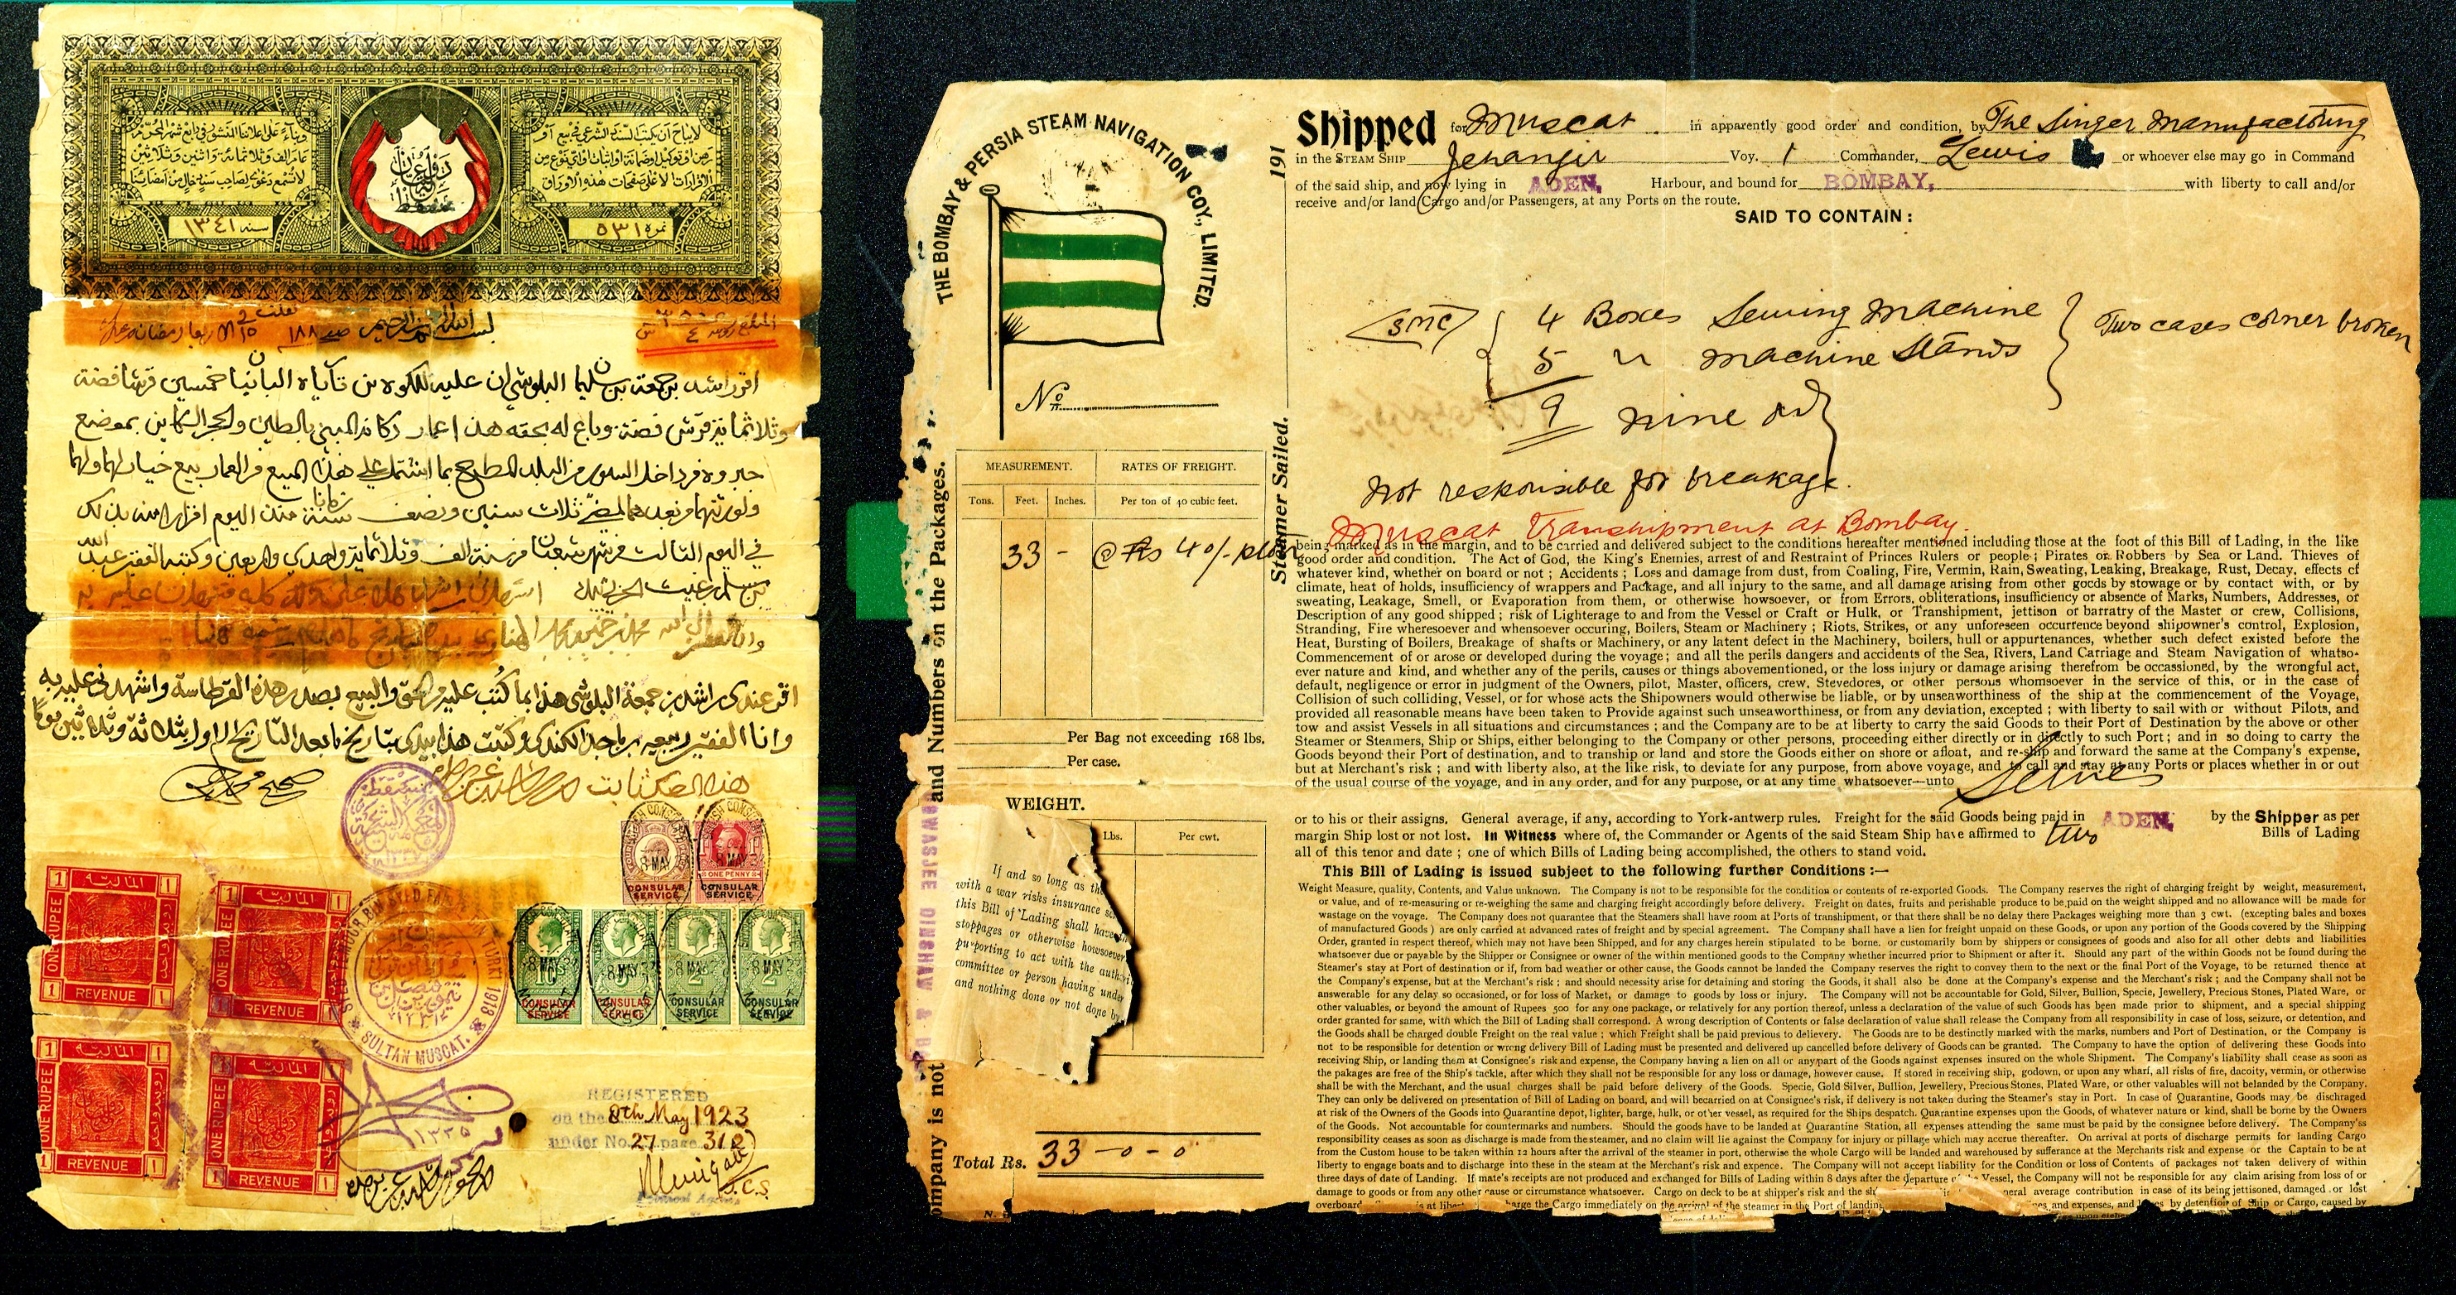 وبناءً على اعلاننا المنشور في رابع شهر المحرّم
عام الف وثلاثمائة واثنين وثلاثين
لا تُسمع دعوى لصاحب سند خال من امضائنا
دولة عُمان
مسقط
لا يباح أن يكتب السند الشرعي في بيع أو
رهن أو توكيل أو ضمانة أو اثبات أو اي نوع من
الاقرارات الا على صفحات هذه الاوراق
سنه ١٣٤١
نمرة ٥٣١
بسم الله الرحمن الرحيم
اقر راشد بن جمعة بن سليما البلوشي ان عليه للكوه بن البانيا خمسين قرشا فضة
وثلاثمائة قرش فضة وباع له بحقه هذا عمار دكانه المبني بالطين والحجر الكائن بموضع
من داخل السور من البلد المطرح بما اشتمل عليه هذا المبيع من العمار بيع خيار لهما ولهما
ولورثتهما وبعدهما لمضي ثلاث سنين ونصف سنة زمانا منذ اليوم اقرارا منه بذلك
في اليوم الثالث من شهر شعبان من سنة الف وثلاثمائة واحدى واربعين وكتبه الفقير عبد الله
اقر عندي راشد بن جمعة البلوشي هذا بما كُتب عليه من الحق والبيع بصدر هذه القرطاسة واشهدني عليه به
وانا الفقير ربيعه بن ماجد الكندي وكتبت هذا بيدي بتاريخ ما بعد التاريخ الاول بثلاثة وثلاثين يوما
هذا الصك ثابت
CONSULAR SERVICE
ONE PENNY
CONSULAR SERVICE
8 MAY
CONSULAR SERVICE
CONSULAR SERVICE
CONSULAR SERVICE
CONSULAR SERVICE
1 المالية ١
ONE RUPEE
REVENUE
1 المالية ١
ONE RUPEE
REVENUE
1 المالية ١
ONE RUPEE
REVENUE
1 المالية ١
ONE RUPEE
REVENUE
SULTAN MUSCAT.
١٣٣٥
REGISTERED
on the 8th May 1923
under No. 27 page 312
I.C.S.
THE BOMBAY & PERSIA STEAM NAVIGATION COY., LIMITED.
No.
191
Steamer Sailed.
ompany is not and Numbers on the Packages.
COWASJEE DINSHAW &
Shipped for Muscat in apparently good order and condition, by The Singer Manufacturing
in the STEAM SHIP Jehangir Voy. 1 Commander, Lewis or whoever else may go in Command
of the said ship, and now lying in ADEN, Harbour, and bound for BOMBAY, with liberty to call and/or
receive and/or land Cargo and/or Passengers, at any Ports on the route.
SAID TO CONTAIN:
SMC
4 Boxes Sewing Machine
5 " Machine Stands
9 nine
Two cases corner broken
Not responsible for breakage.
Muscat Transhipment at Bombay.
MEASUREMENT. RATES OF FREIGHT.
Tons. Feet. Inches. Per ton of 40 cubic feet.
33 - @ Rs 40/-
Per Bag not exceeding 168 lbs.
Per case.
WEIGHT.
Lbs. Per cwt.
If and so long as th
with a war risks insurance
this Bill of Lading shall have
stoppages or otherwise howsoever
purporting to act with the auth
committee or person having unde
and nothing done or not done by
Total Rs. 33-0-0
being marked as in the margin, and to be carried and delivered subject to the conditions hereafter mentioned including those at the foot of this Bill of Lading, in the like
good order and condition. The Act of God, the King's Enemies, arrest of and Restraint of Princes Rulers or people; Pirates or Robbers by Sea or Land. Thieves of
whatever kind, whether on board or not; Accidents; Loss and damage from dust, from Coaling, Fire, Vermin, Rain, Sweating, Leaking, Breakage, Rust, Decay, effects of
climate, heat of holds, insufficiency of wrappers and Package, and all injury to the same, and all damage arising from other goods by stowage or by contact with, or by
sweating, Leakage, Smell, or Evaporation from them, or otherwise howsoever, or from Errors, obliterations, insufficiency or absence of Marks, Numbers, Addresses, or
Description of any good shipped; risk of Lighterage to and from the Vessel or Craft or Hulk, or Transhipment, jettison or barratry of the Master or crew, Collisions,
Stranding, Fire wheresoever and whensoever occuring, Boilers, Steam or Machinery; Riots, Strikes, or any unforeseen occurrence beyond shipowner's control, Explosion,
Heat, Bursting of Boilers, Breakage of shafts or Machinery, or any latent defect in the Machinery, boilers, hull or appurtenances, whether such defect existed before the
Commencement of or arose or developed during the voyage; and all the perils dangers and accidents of the Sea, Rivers, Land Carriage and Steam Navigation of whatso-
ever nature and kind, and whether any of the perils, causes or things abovementioned, or the loss injury or damage arising therefrom be occassioned, by the wrongful act,
default, negligence or error in judgment of the Owners, pilot, Master, officers, crew, Stevedores, or other persons whomsoever in the service of this, or in the case of
Collision of such colliding, Vessel, or for whose acts the Shipowners would otherwise be liable, or by unseaworthiness of the ship at the commencement of the Voyage,
provided all reasonable means have been taken to Provide against such unseaworthiness, or from any deviation, excepted; with liberty to sail with or without Pilots, and
tow and assist Vessels in all situations and circumstances; and the Company are to be at liberty to carry the said Goods to their Port of Destination by the above or other
Steamer or Steamers, Ship or Ships, either belonging to the Company or other persons, proceeding either directly or in directly to such Port; and in so doing to carry the
Goods beyond their Port of destination, and to tranship or land and store the Goods either on shore or afloat, and re-ship and forward the same at the Company's expense,
but at Merchant's risk; and with liberty also, at the like risk, to deviate for any purpose, from above voyage, and to call and stay at any Ports or places whether in or out
of the usual course of the voyage, and in any order, and for any purpose, or at any time whatsoever—unto
or to his or their assigns. General average, if any, according to York-antwerp rules. Freight for the said Goods being paid in ADEN, by the Shipper as per
margin Ship lost or not lost. In Witness where of, the Commander or Agents of the said Steam Ship have affirmed to two Bills of Lading
all of this tenor and date; one of which Bills of Lading being accomplished, the others to stand void.
This Bill of Lading is issued subject to the following further Conditions:—
Weight Measure, quality, Contents, and Value unknown. The Company is not to be responsible for the condition or contents of re-exported Goods. The Company reserves the right of charging freight by weight, measurement,
or value, and of re-measuring or re-weighing the same and charging freight accordingly before delivery. Freight on dates, fruits and perishable produce to be paid on the weight shipped and no allowance will be made for
wastage on the voyage. The Company does not quarantee that the Steamers shall have room at Ports of transhipment, or that there shall be no delay there Packages weighing more than 3 cwt. (excepting bales and boxes
of manufactured Goods) are only carried at advanced rates of freight and by special agreement. The Company shall have a lien for freight unpaid on these Goods, or upon any portion of the Goods covered by the Shipping
Order, granted in respect thereof, which may not have been Shipped, and for any charges herein stipulated to be borne. or customarily born by shippers or consignes of goods and also for all other debts and liabilities
whatsoever due or payable by the Shipper or Consignee or owner of the within mentioned goods to the Company whether incurred prior to Shipment or after it. Should any part of the within Goods not be found during the
Steamer's stay at Port of destination or if, from bad weather or other cause, the Goods cannot be landed the Company reserves the right to convey them to the next or the final Port of the Voyage, to be returned thence at
the Company's expense, but at Merchant's risk; and should necessity arise for detaining and storing the Goods, it shall also be done at the Company's expense and the Merchant's risk; and the Company shall not be
answerable for any delay so occasioned, or for loss of Market, or damage to goods by loss or injury. The Company will not be accountable for Gold, Silver, Bullion, Specie, Jewellery, Precious Stones, Plated Ware, or
other valuables, or beyond the amount of Rupees 500 for any one package, or relatively for any portion thereof, unless a declaration of the value of such Goods has been made prior to shipment, and a special shipping
order granted for same, with which the Bill of Lading shall correspond. A wrong description of Contents or false declaration of value shall release the Company from all responsibility in case of loss, seizure, or detention, and
the Goods shall be charged double Freight on the real value; which Freight shall be paid previous to delivery. The Goods are to be destinctly marked with the marks, numbers and Port of Destination, or the Company is
not to be responsible for detention or wrong delivery Bill of Lading must be presented and delivered up cancelled before delivery of Goods can be granted. The Company to have the option of delivering these Goods into
receiving Ship, or landing them at Consignee's risk and expense, the Company having a lien on all or any part of the Goods against expenses insured on the whole Shipment. The Company's liability shall cease as soon as
the pakages are free of the Ship's tackle, after which they shall not be responsible for any loss or damage, however cause. If stored in receiving ship, godown, or upon any wharf, all risks of fire, dacoity, vermin, or otherwise
shall be with the Merchant, and the usual charges shall be paid before delivery of the Goods. Specie, Gold Silver, Bullion, Jewellery, Precious Stones, Plated Ware, or other valuables will not belanded by the Company.
They can only be delivered on presentation of Bill of Lading on board, and will becarried on at Consignee's risk, if delivery is not taken during the Steamer's stay in Port. In case of Quarantine, Goods may be dischraged
at risk of the Owners of the Goods into Quarantine depot, lighter, barge, hulk, or other vessel, as required for the Ships despatch. Quarantine expenses upon the Goods, of whatever nature or kind, shall be borne by the Owners
of the Goods. Not accountable for countermarks and numbers. Should the goods have to be landed at Quarantine Station, all expenses attending the same must be paid by the consignee before delivery. The Company'ss
responsibility ceases as soon as discharge is made from the steamer, and no claim will lie against the Company for injury or pillage which may accrue thereafter. On arrival at ports of discharge permits for landing Cargo
from the Custom house to be taken within 12 hours after the arrival of the steamer in port, otherwise the whole Cargo will be landed and warehoused by sufferance at the Merchants risk and expense or the Captain to be at
liberty to engage boats and to discharge into these in the steam at the Merchant's risk and expence. The Company will not accept liability for the Condition or loss of Contents of packages not taken delivery of within
three days of date of Landing. If mate's receipts are not produced and exchanged for Bills of Lading within 8 days after the departure of Vessel, the Company will not be responsible for any claim arising from loss of or
damage to goods or from any other cause or circumstance whatsoever. Cargo on deck to be at shipper's risk and the sh eneral average contribution in case of its being jettisoned, damaged or lost
overboard is at libert harge the Cargo immediately on the arrival of the steamer in the Port of landing and expenses, and by detention of Ship or Cargo, caused by